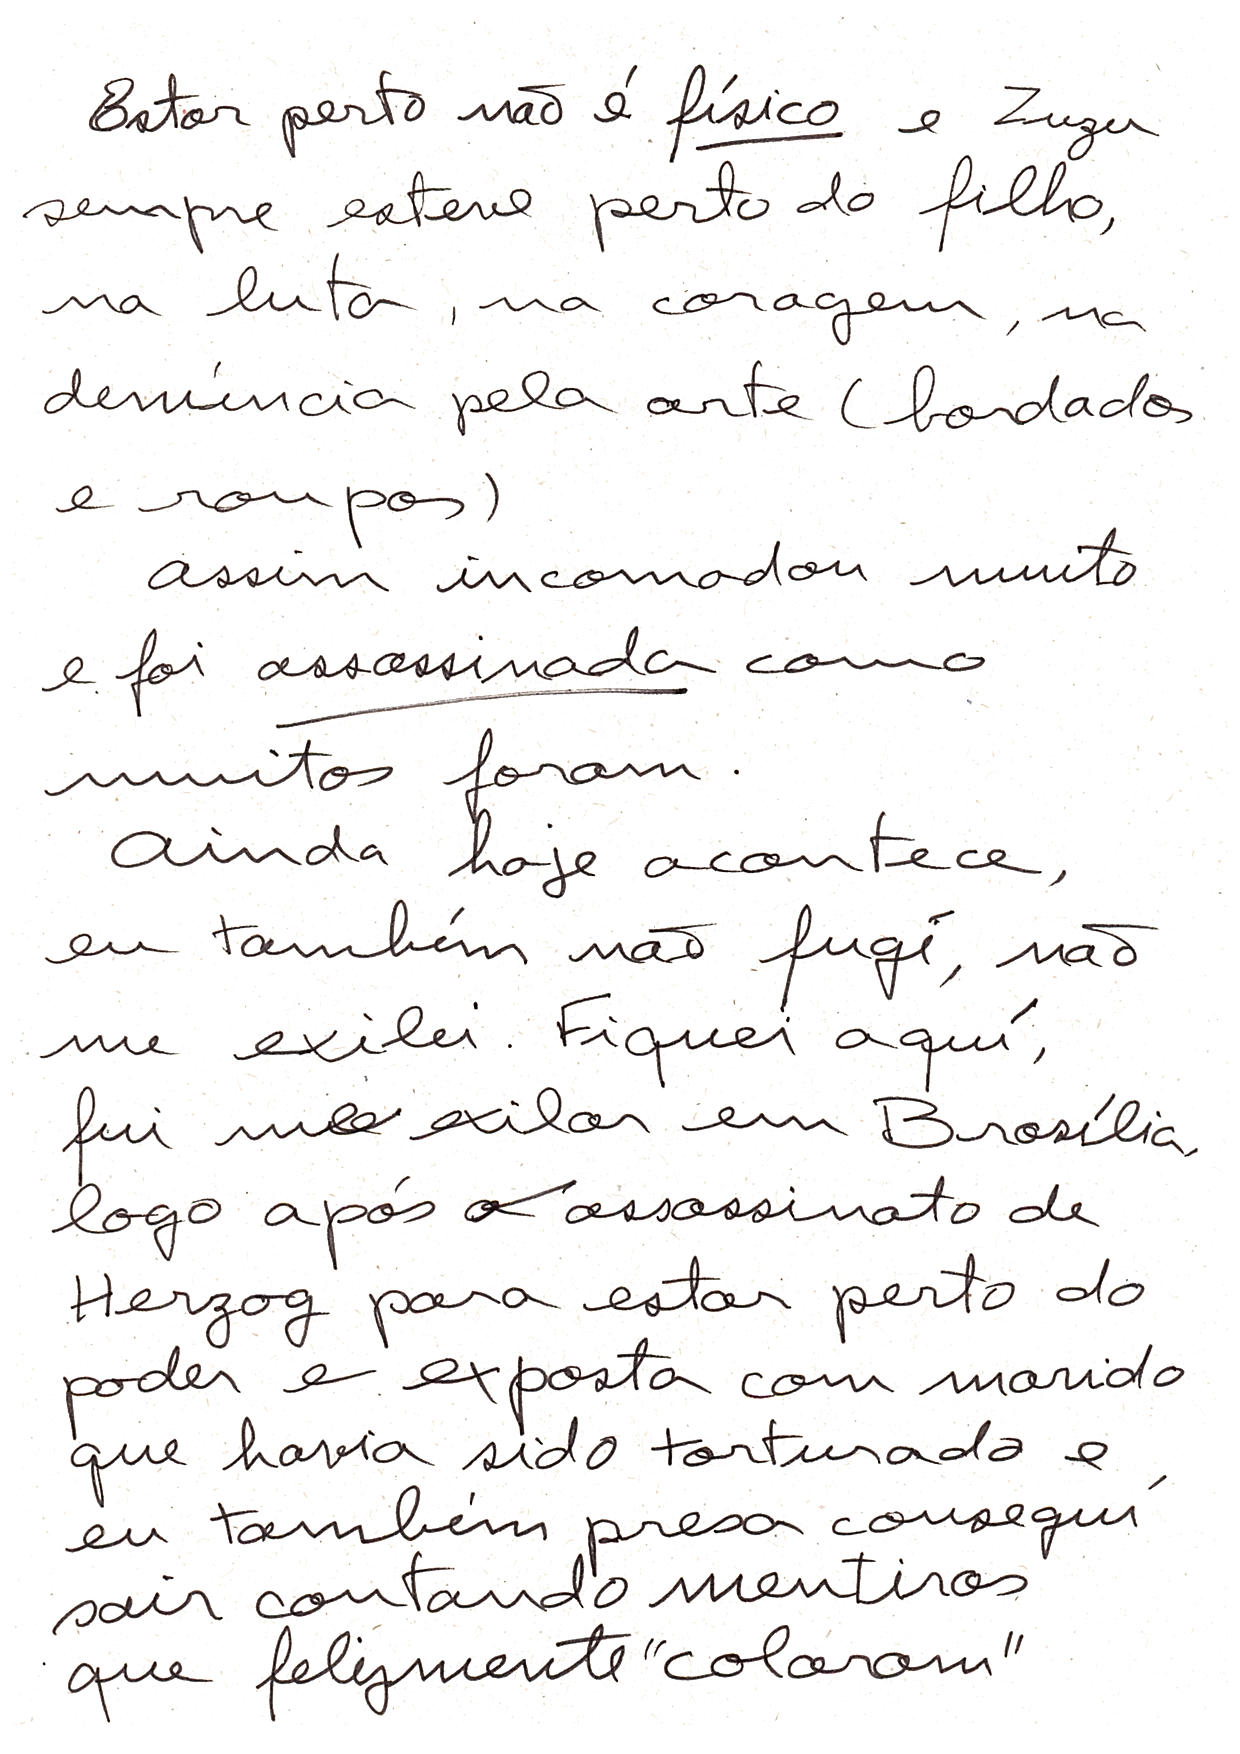 Estar perto não é físico e Zuzu
sempre esteve perto do filho,
na luta, na coragem, na
denúncia pela arte (bordados
e roupas)
Assim incomodou muito
e foi assassinada como
muitos foram.
Ainda hoje acontece,
eu também não fugí, não
me exilei. Fiquei aquí,
fui me exilar em Brasília,
logo após o assassinato de
Herzog para estar perto do
poder e exposta com marido
que havia sido torturado e
eu também presa conseguí
sair contando mentiras
que felizmente "colaram"